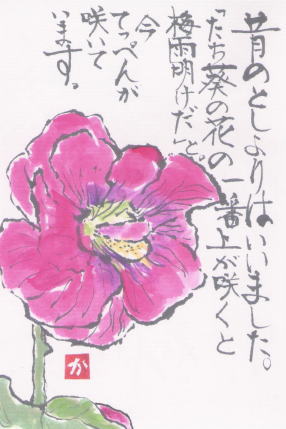 昔のとしよりはいいました。
「たち葵の花の一番上が咲くと
梅雨明けだ」と。
今
てっぺんが
咲いて
います。
か